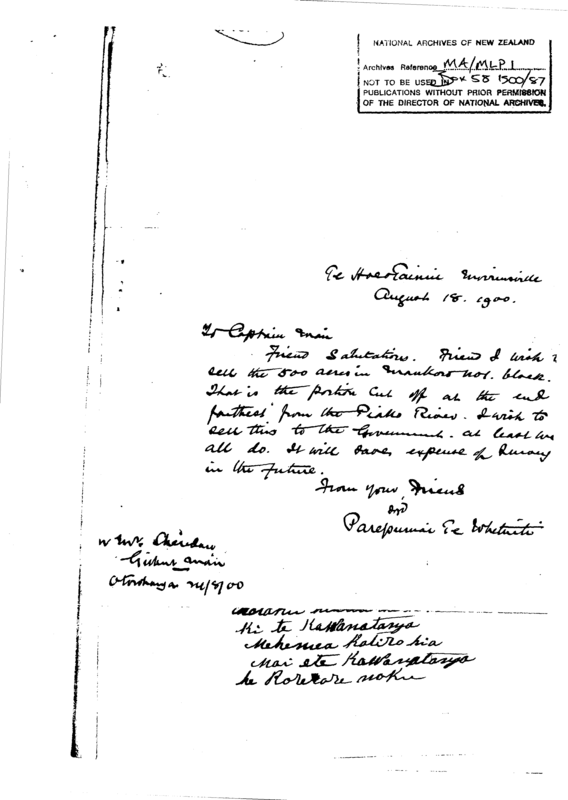 NATIONAL ARCHIVES OF NEW ZEALAND
Archives Reference MA/MLP 1
NOT TO BE USED IN Box 58 1900/87
PUBLICATIONS WITHOUT PRIOR PERMISSION
OF THE DIRECTOR OF NATIONAL ARCHIVES.
Te Hoe o Tainui Morrinsville
August 18. 1900.
To Captain Mair
Friend Salutations. Friend I wish
sell the 500 acres in No1. block.
That is the portion cut off at the end
farthest from the Piako River. I wish to
sell this to the Government. at least we
all do. It will save expense of Survey
in the future.
From your Friend
Te Whetuiti
Mr. Sheridan
Gilbert Mair
Otorohanga
Ki te Kawanatanga
Mehemea Katiro hia
Mai ete Kawanatanga
he Rorekore noku